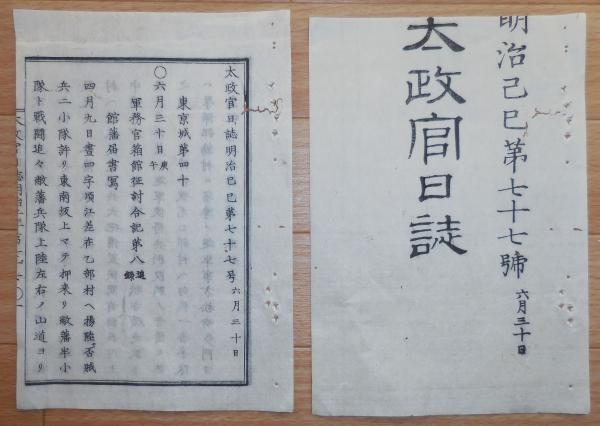 明治己巳第七十七號
六月三十日
太政官日誌
太政官日誌明治己巳第七十七号 六月三十日
東京城第四十
〇六月三十日庚午
軍務官箱館征討合記第八追録
館藩届書寫
四月九日晝四字頃江差在乙部村ヘ揚陸否賊
兵二小隊許リ東南坂上マテ押来リ敝藩半小
隊ト戰鬪追々敝藩兵隊上陸左右ノ山道ヨリ